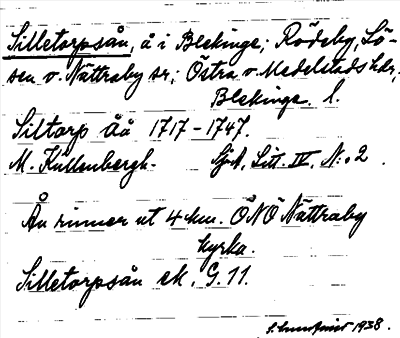 Silletorpsån, å i Blekinge; Rödeby, Lö-
sen o. Nättraby sr; Östra o. Medelstads hdr,
Blekinge l.
Siltorp Åå 1717-1747.
M. Kullenbergh. SjA, Litt. IV, N:o 2.
Ån rinner ut 4 km. ÖNÖ Nättraby
kyrka.
Silletorpsån ek. G. 11.
1938.